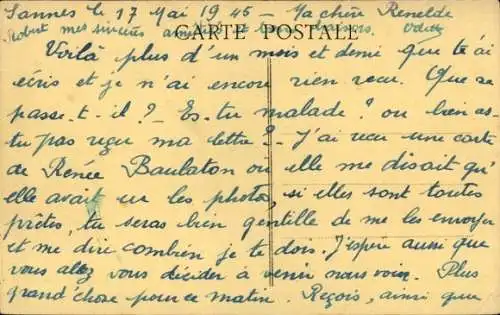 Sannes le 17 Mai 1945 - Ma chère Renelde
Robert mes sincères amitiés et bons baisers. Odette
CARTE POSTALE
Voilà plus d'un mois et demi que t'ai
écris et je n'ai encore rien reçu. Que se
passe-t-il? - Es-tu malade? ou bien as-
tu pas reçu ma lettre? - J'ai reçu une carte
de Renée Baulaton ou elle me disait qu'
elle avait eu les photos, si elles sont toutes
prêtes, tu seras bien gentille de me les envoyer
et me dire combien je te dois. J'espère aussi que
vous allez vous décider à venir nous voir. Plus
grand'chose pour ce matin. Reçois, ainsi que